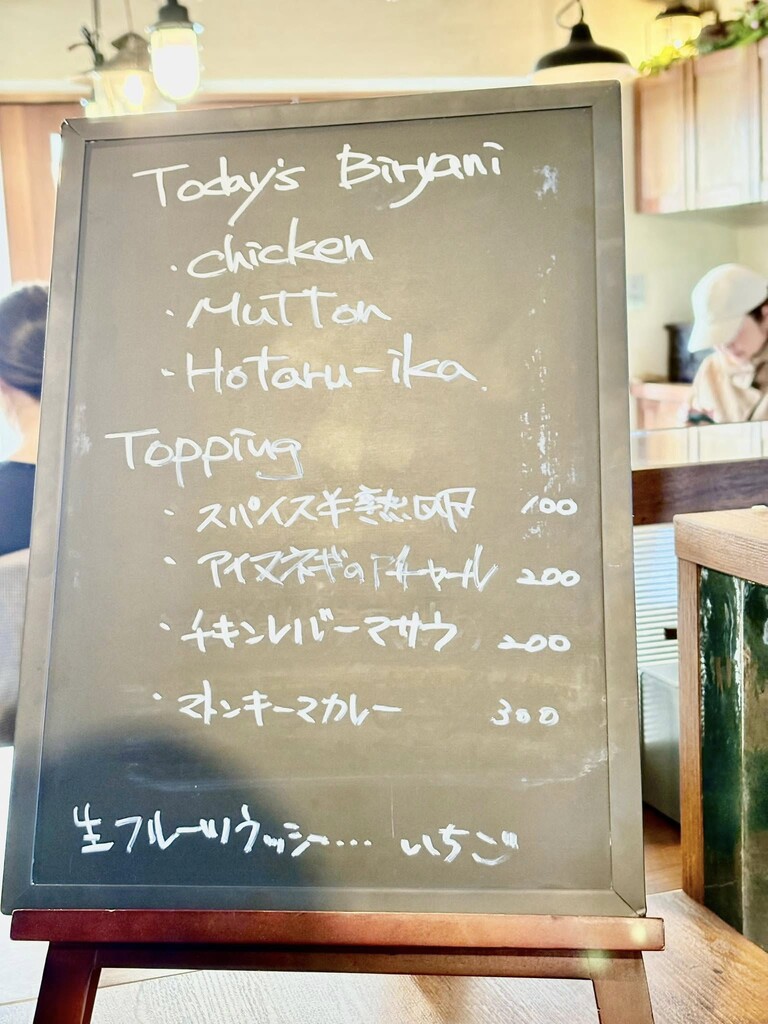 Today's Biryani
・chicken
・Mutton
・Hotaru-ika
Topping
・スパイス半熟卵 100
・アイヌネギのアチャール 200
・チキンレバーマサラ 200
・マトンキーマカレー 300
生フルーツラッシー・・・・ いちご